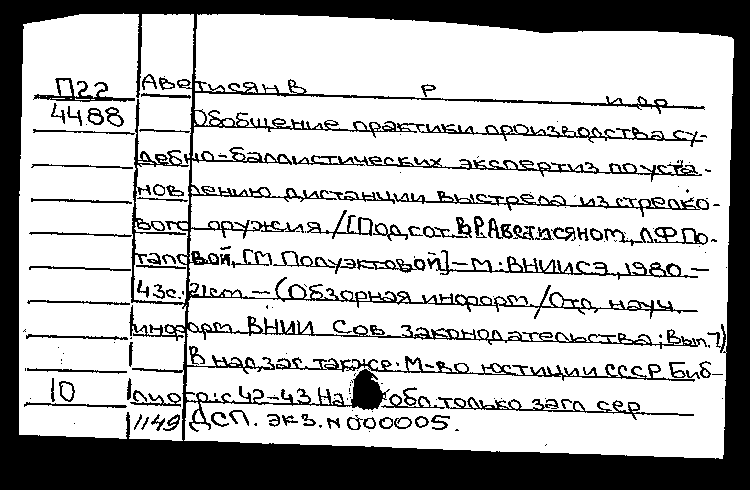 П22 Аветисян В Р и др
4488 Обобщение практики производства су-
дебно-баллистических экспертиз по уста-
новлению дистанции выстрела из стрелко-
вого оружия. /[Подгот. В.Р.Аветисяном, Л.Ф.По-
таповой, [М. Полуэктовой]-М.: ВНИИСЭ, 1980.-
43с.; 21см.-(Обзорная информ /Отд. науч.
информ ВНИИ Сов законодательства; Вып.7)
В надзаг. также: М-во юстиции СССР Биб-
10 лиогр.: с 42-43. На обл. только загл сер
1149 ДСП. экз. N000005.